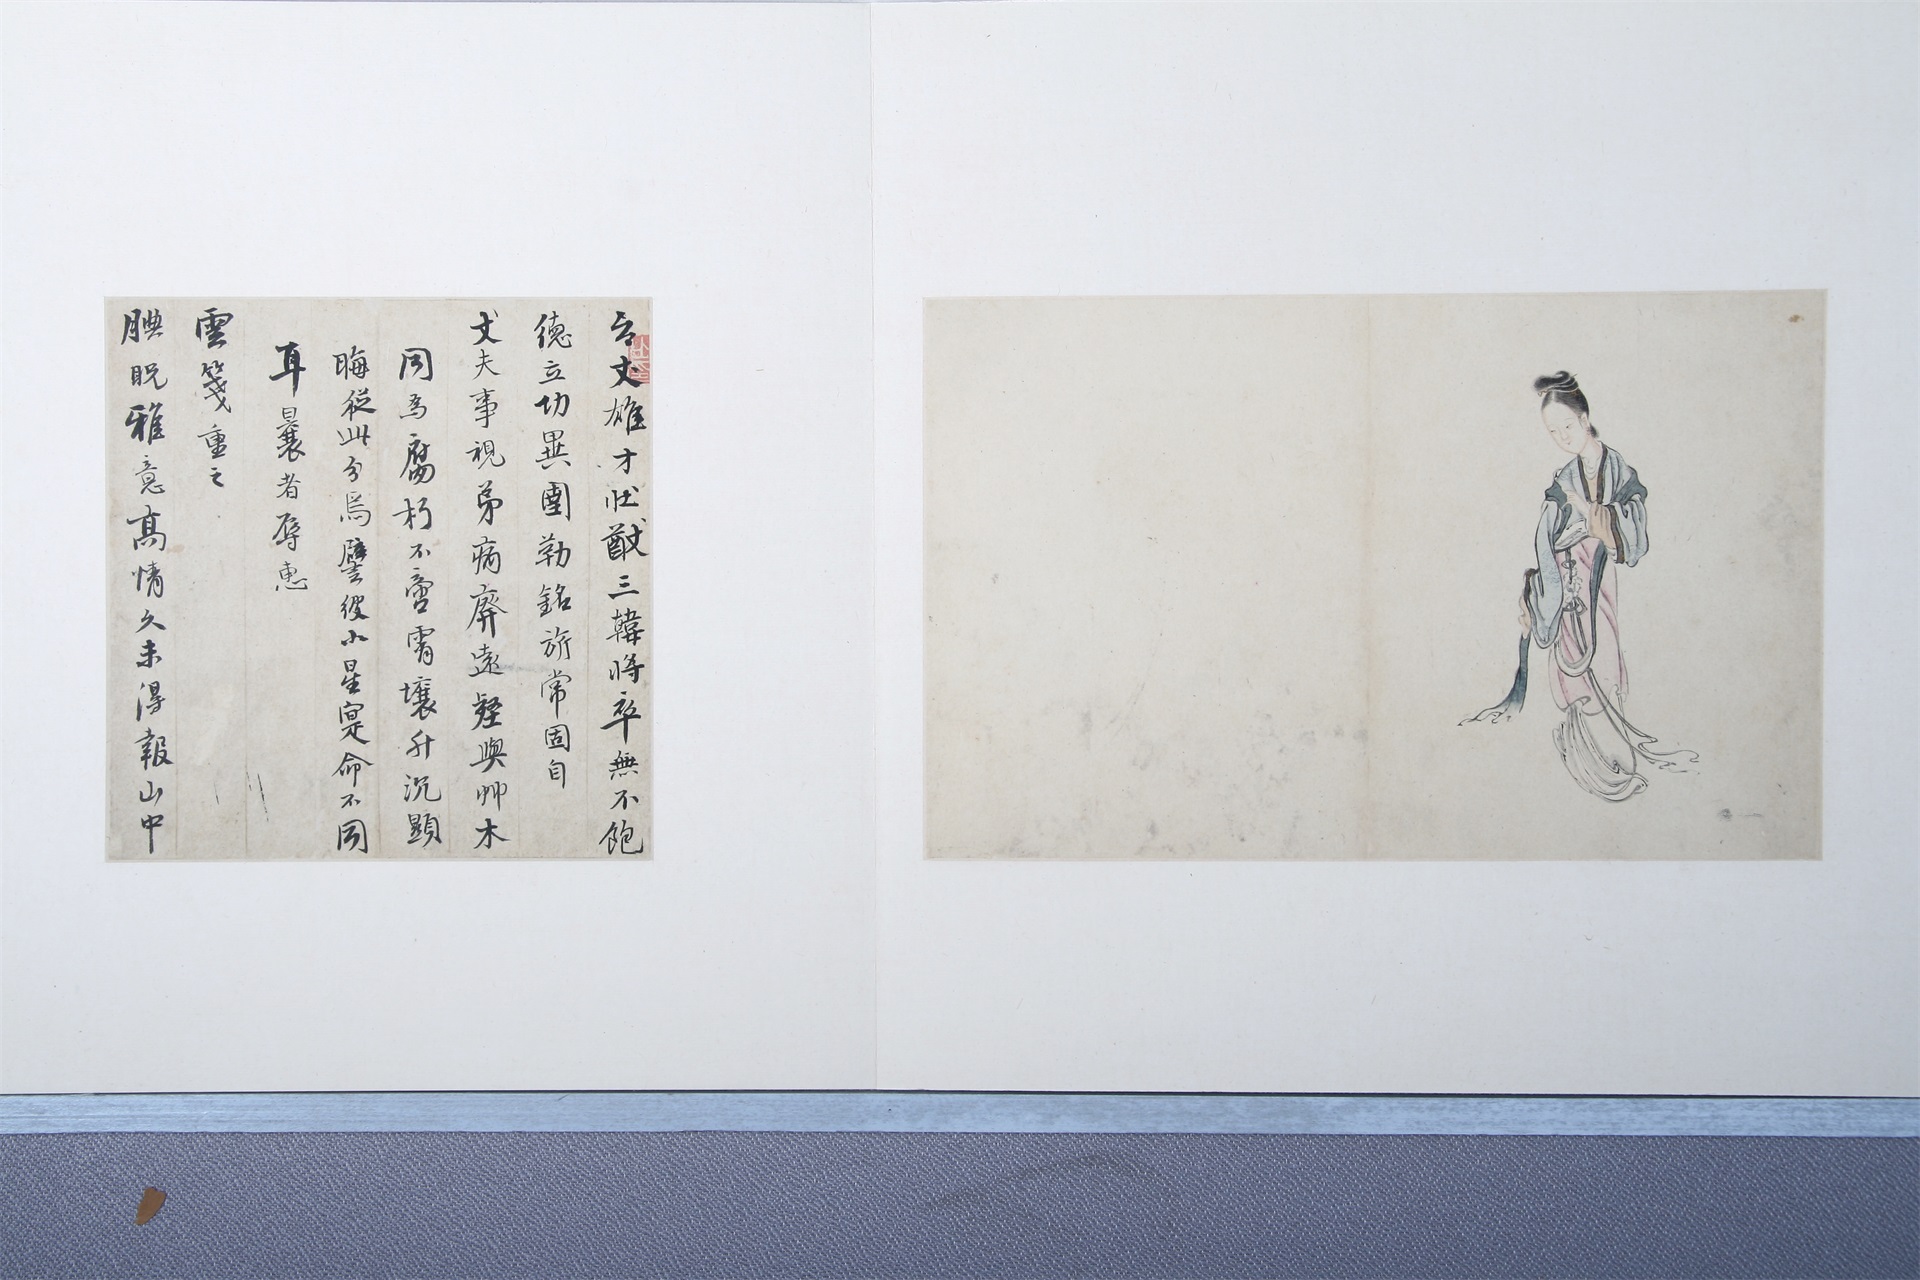 台丈雄才壯猷三韓將卒無不飽
德立功異國勒銘旂常固自
丈夫事視弟病廢遠壑與艸木
同爲腐朽不啻霄壤升沉顯
晦從此分焉譬彼小星寔命不同
耳曩者辱惠
雲箋重之
腆貺雅意高情久未得報山中